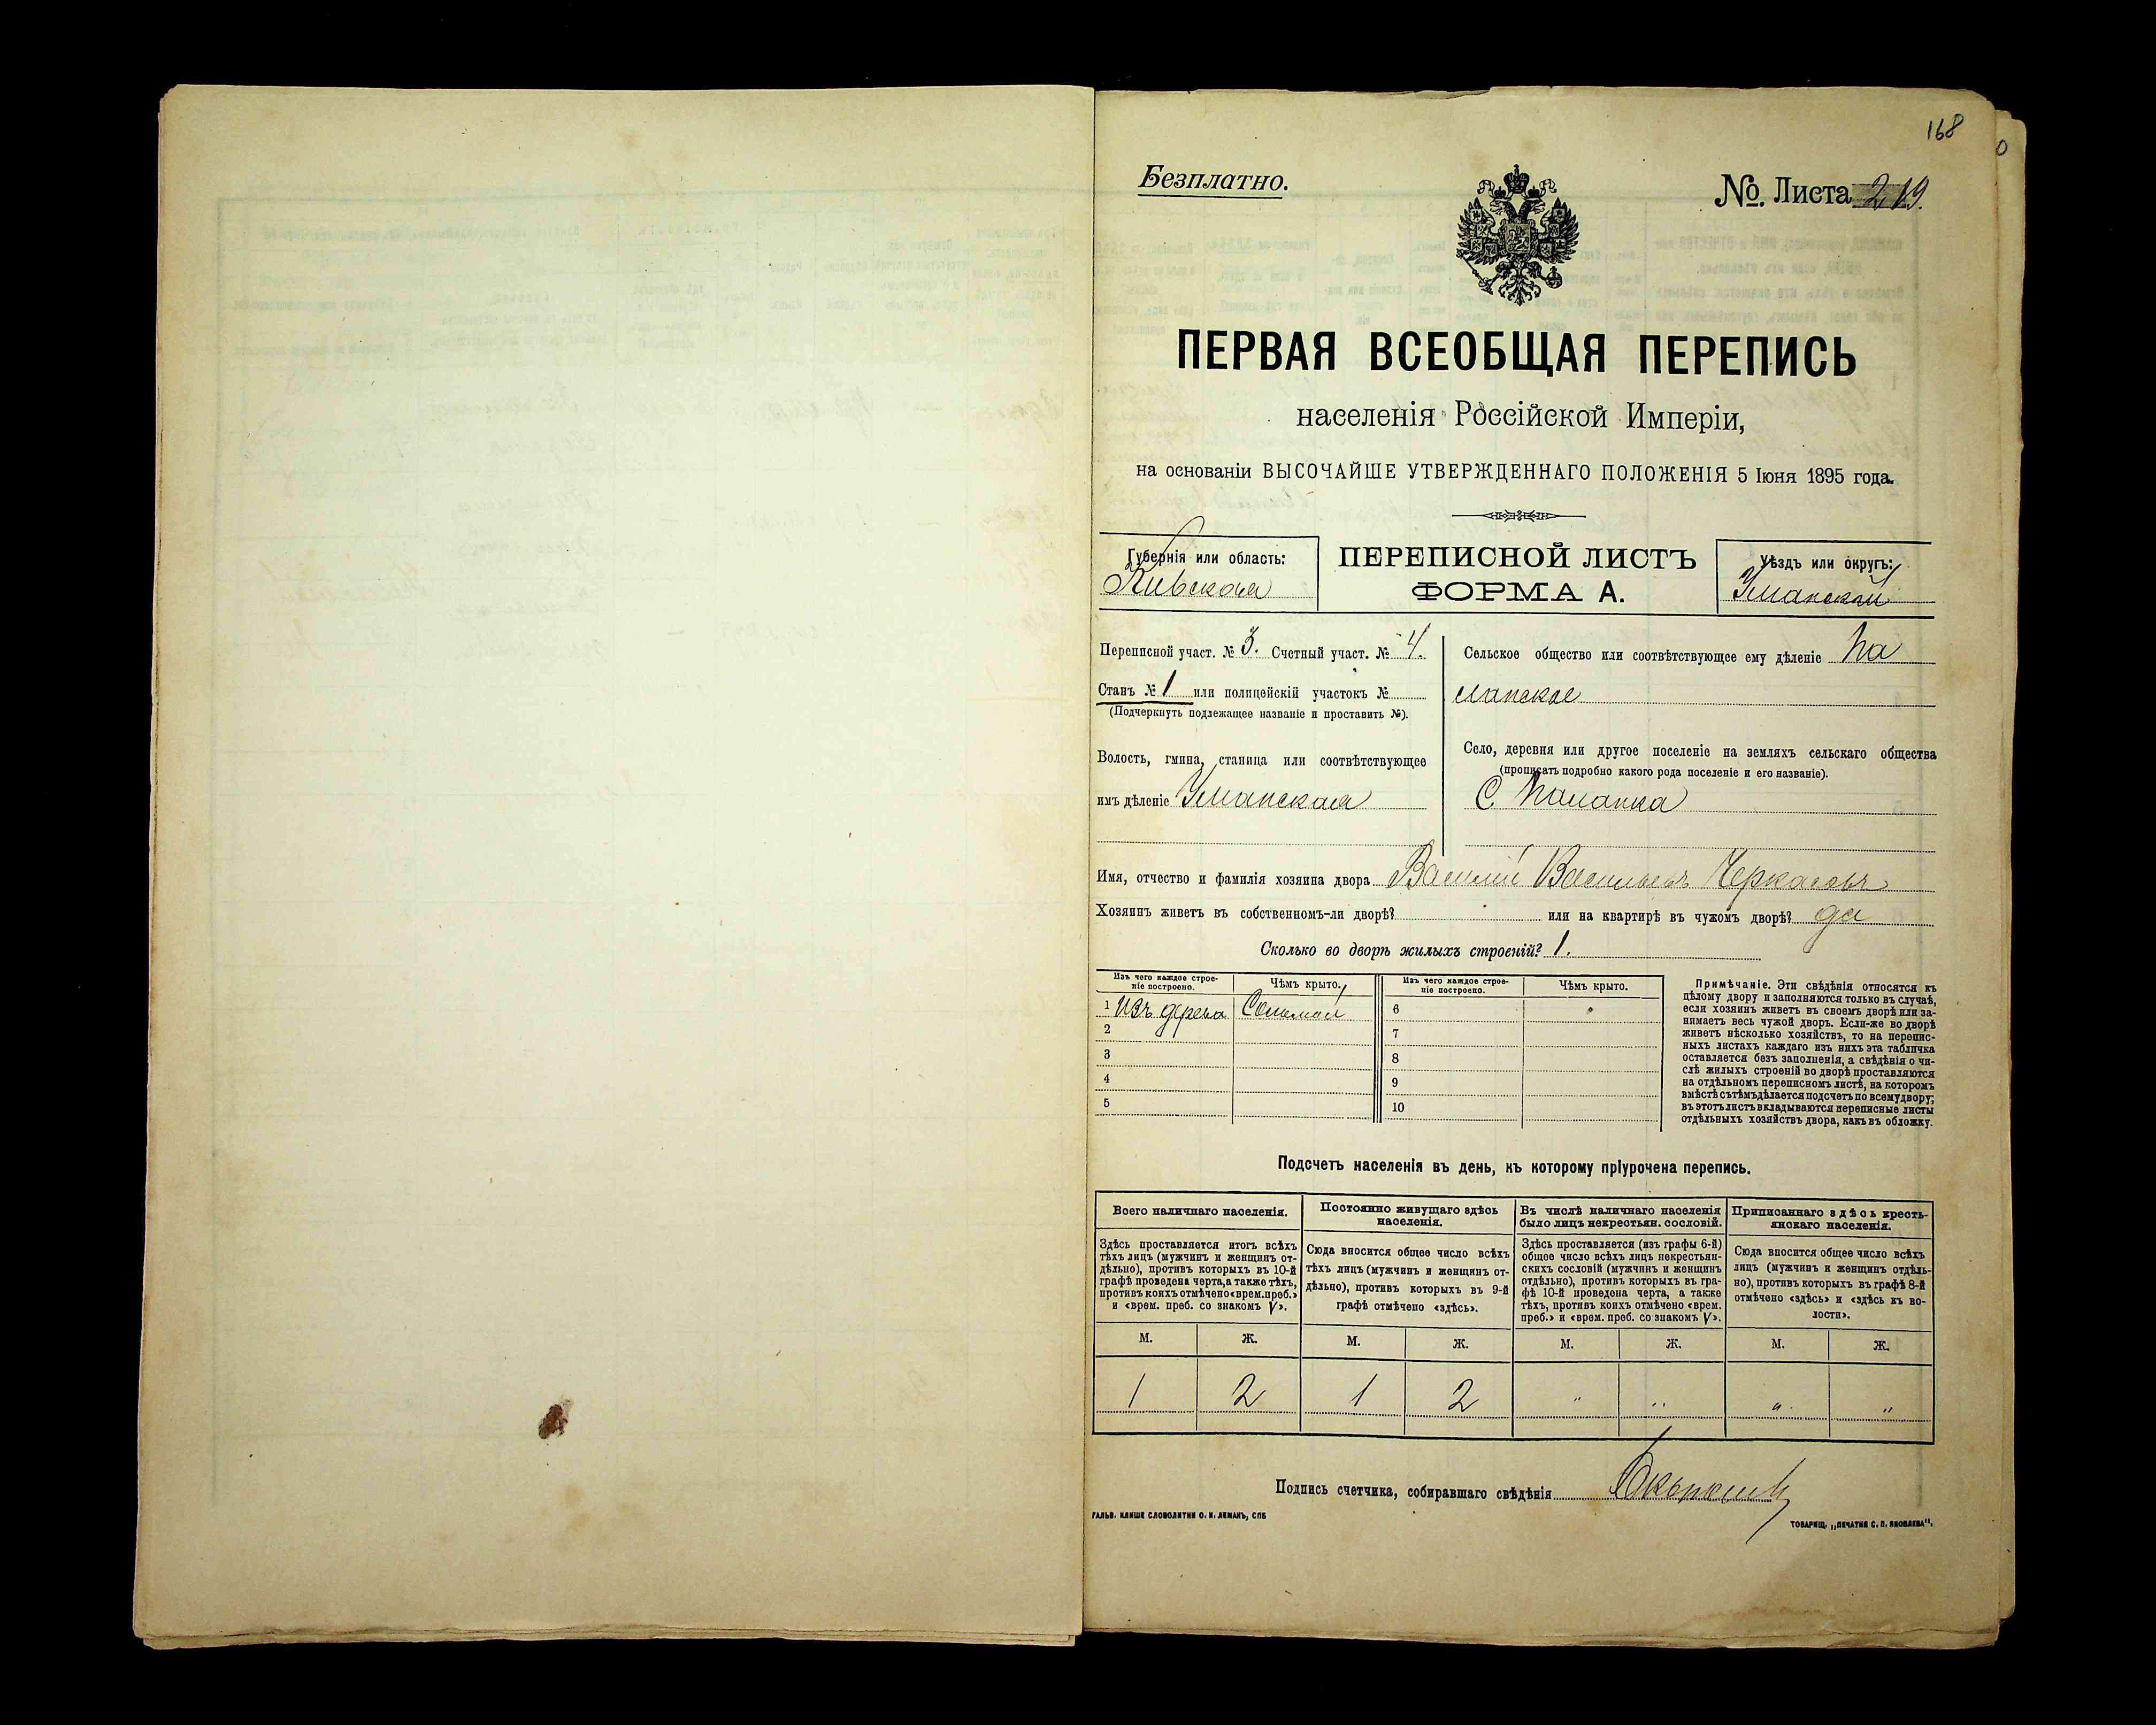 168
Безплатно.
№ Листа 219.
ПЕРВАЯ ВСЕОБЩАЯ ПЕРЕПИСЬ
населенія Россійской Имперіи,
на основаніи ВЫСОЧАЙШЕ УТВЕРЖДЕННАГО ПОЛОЖЕНІЯ 5 Іюня 1895 года.
Губернія или область:
Кіевская
ПЕРЕПИСНОЙ ЛИСТЪ
ФОРМА А.
Уѣздъ или округъ:
Уманскій
Переписной участ. № 3. Счетный участ. № 4.
Станъ № 1 или полицейскій участокъ №
(Подчеркнуть подлежащее названіе и проставить №).
Волость, гмина, станица или соотвѣтствующее
имъ дѣленіе Уманская
Сельское общество или соотвѣтствующее ему дѣленіе Па
ланское
Село, деревня или другое поселеніе на земляхъ сельскаго общества
(прописать подробно какого рода поселеніе и его названіе).
С. Паланка
Имя, отчество и фамилія хозяина двора Василій Васильевъ Черкасовъ
Хозяинъ живетъ въ собственномъ-ли дворѣ? или на квартирѣ въ чужомъ дворѣ? да
Сколько во дворѣ жилыхъ строеній? 1.
Изъ чего каждое строе-
ніе построено.
Чѣмъ крыто.
1 Изъ дерева Соломой
2
3
4
5
Изъ чего каждое строе-
ніе построено.
Чѣмъ крыто.
6
7
8
9
10
Примѣчаніе. Эти свѣдѣнія относятся къ
цѣлому двору и заполняются только въ случаѣ,
если хозяинъ живетъ въ своемъ дворѣ или за-
нимаетъ весь чужой дворъ. Если-же во дворѣ
живетъ нѣсколько хозяйствъ, то на перепис-
ныхъ листахъ каждаго изъ нихъ эта табличка
оставляется безъ заполненія, а свѣдѣнія о чи-
слѣ жилыхъ строеній во дворѣ проставляются
на отдѣльномъ переписномъ листѣ, на которомъ
вмѣстѣ съ тѣмъ дѣлается подсчетъ по всему двору;
въ этотъ листъ вкладываются переписные листы
отдѣльныхъ хозяйствъ двора, какъ въ обложку.
Подсчетъ населенія въ день, къ которому пріурочена перепись.
Всего наличнаго населенія.
Здѣсь проставляется итогъ всѣхъ
тѣхъ лицъ (мужчинъ и женщинъ от-
дѣльно), противъ которыхъ въ 10-й
графѣ проведена черта, а также тѣхъ,
противъ коихъ отмѣчено «врем. преб.»
и «врем. преб. со знакомъ V».
М. Ж.
1 2
Постоянно живущаго здѣсь
населенія.
Сюда вносится общее число всѣхъ
тѣхъ лицъ (мужчинъ и женщинъ от-
дѣльно), противъ которыхъ въ 9-й
графѣ отмѣчено «здѣсь».
М. Ж.
1 2
Въ числѣ наличнаго населенія
было лицъ некрестьян. сословій.
Здѣсь проставляется (изъ графы 6-й)
общее число всѣхъ лицъ некрестьян-
скихъ сословій (мужчинъ и женщинъ
отдѣльно), противъ которыхъ въ гра-
фѣ 10-й проведена черта, а также
тѣхъ, противъ коихъ отмѣчено «врем.
преб.» и «врем. преб. со знакомъ V».
М. Ж.
" "
Приписаннаго здѣсь кресть-
янскаго населенія.
Сюда вносится общее число всѣхъ
лицъ (мужчинъ и женщинъ отдѣль-
но), противъ которыхъ въ графѣ 8-й
отмѣчено «здѣсь» и «здѣсь къ во-
лости».
М. Ж.
" "
Подпись счетчика, собиравшаго свѣдѣнія
ГАЛЬВ. КЛИШЕ СЛОВОЛИТНИ О. И. ЛЕМАНЪ, СПБ
ТОВАРИЩ. „ПЕЧАТНЯ С. П. ЯКОВЛЕВА".